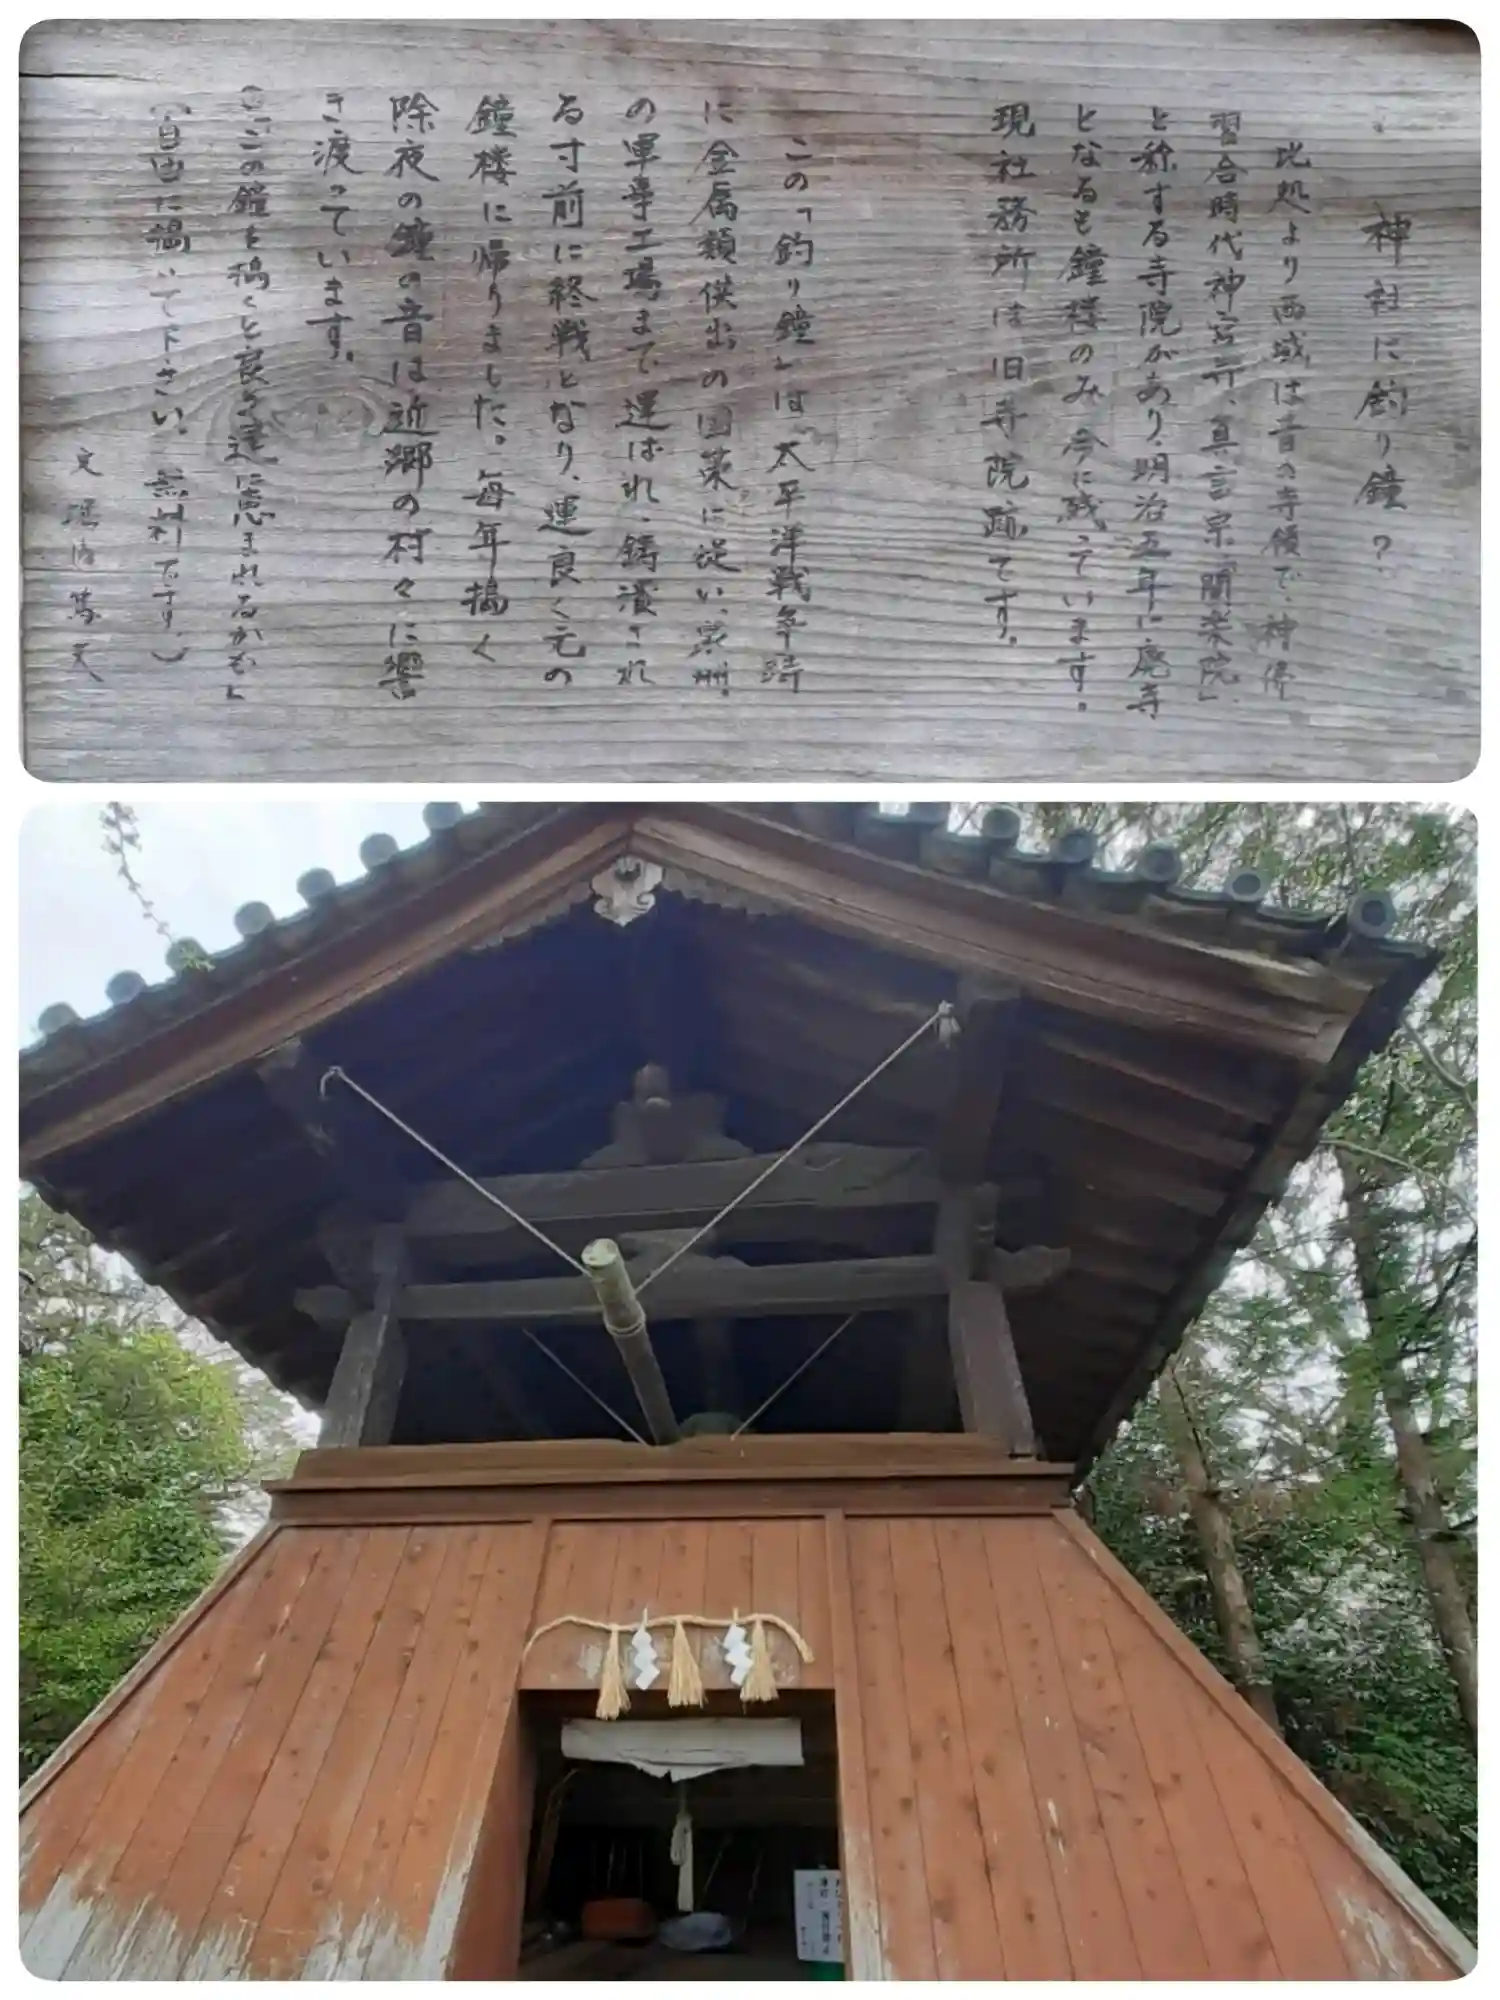 神社に釣り鐘?
此処より西域は昔の寺領で、神佛
習合時代神宮寺、真言宗「閒楽院」
と称する寺院があり、明治五年に廃寺
となるも鐘楼のみ今に残っています。
現社務所は旧寺院跡です。
この「釣り鐘」は、太平洋戦争時
に金属類供出の国策に従い、泉州
の軍事工場まで運ばれ、鋳潰され
る寸前に終戦となり、運良く元の
鐘楼に帰りました。毎年撞く
除夜の鐘の音は近郷の村々に響
き渡っています。
「この鐘を撞くと良き運に恵まれるかも」
(自由に撞いて下さい。無料です。)